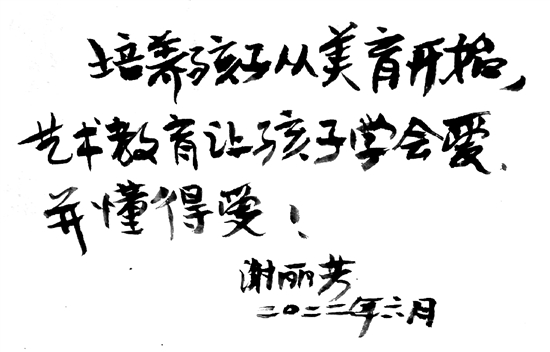 培养孩子从美育开始,
艺术教育让孩子学会爱、
并懂得爱!
谢丽芳
二〇二二年六月